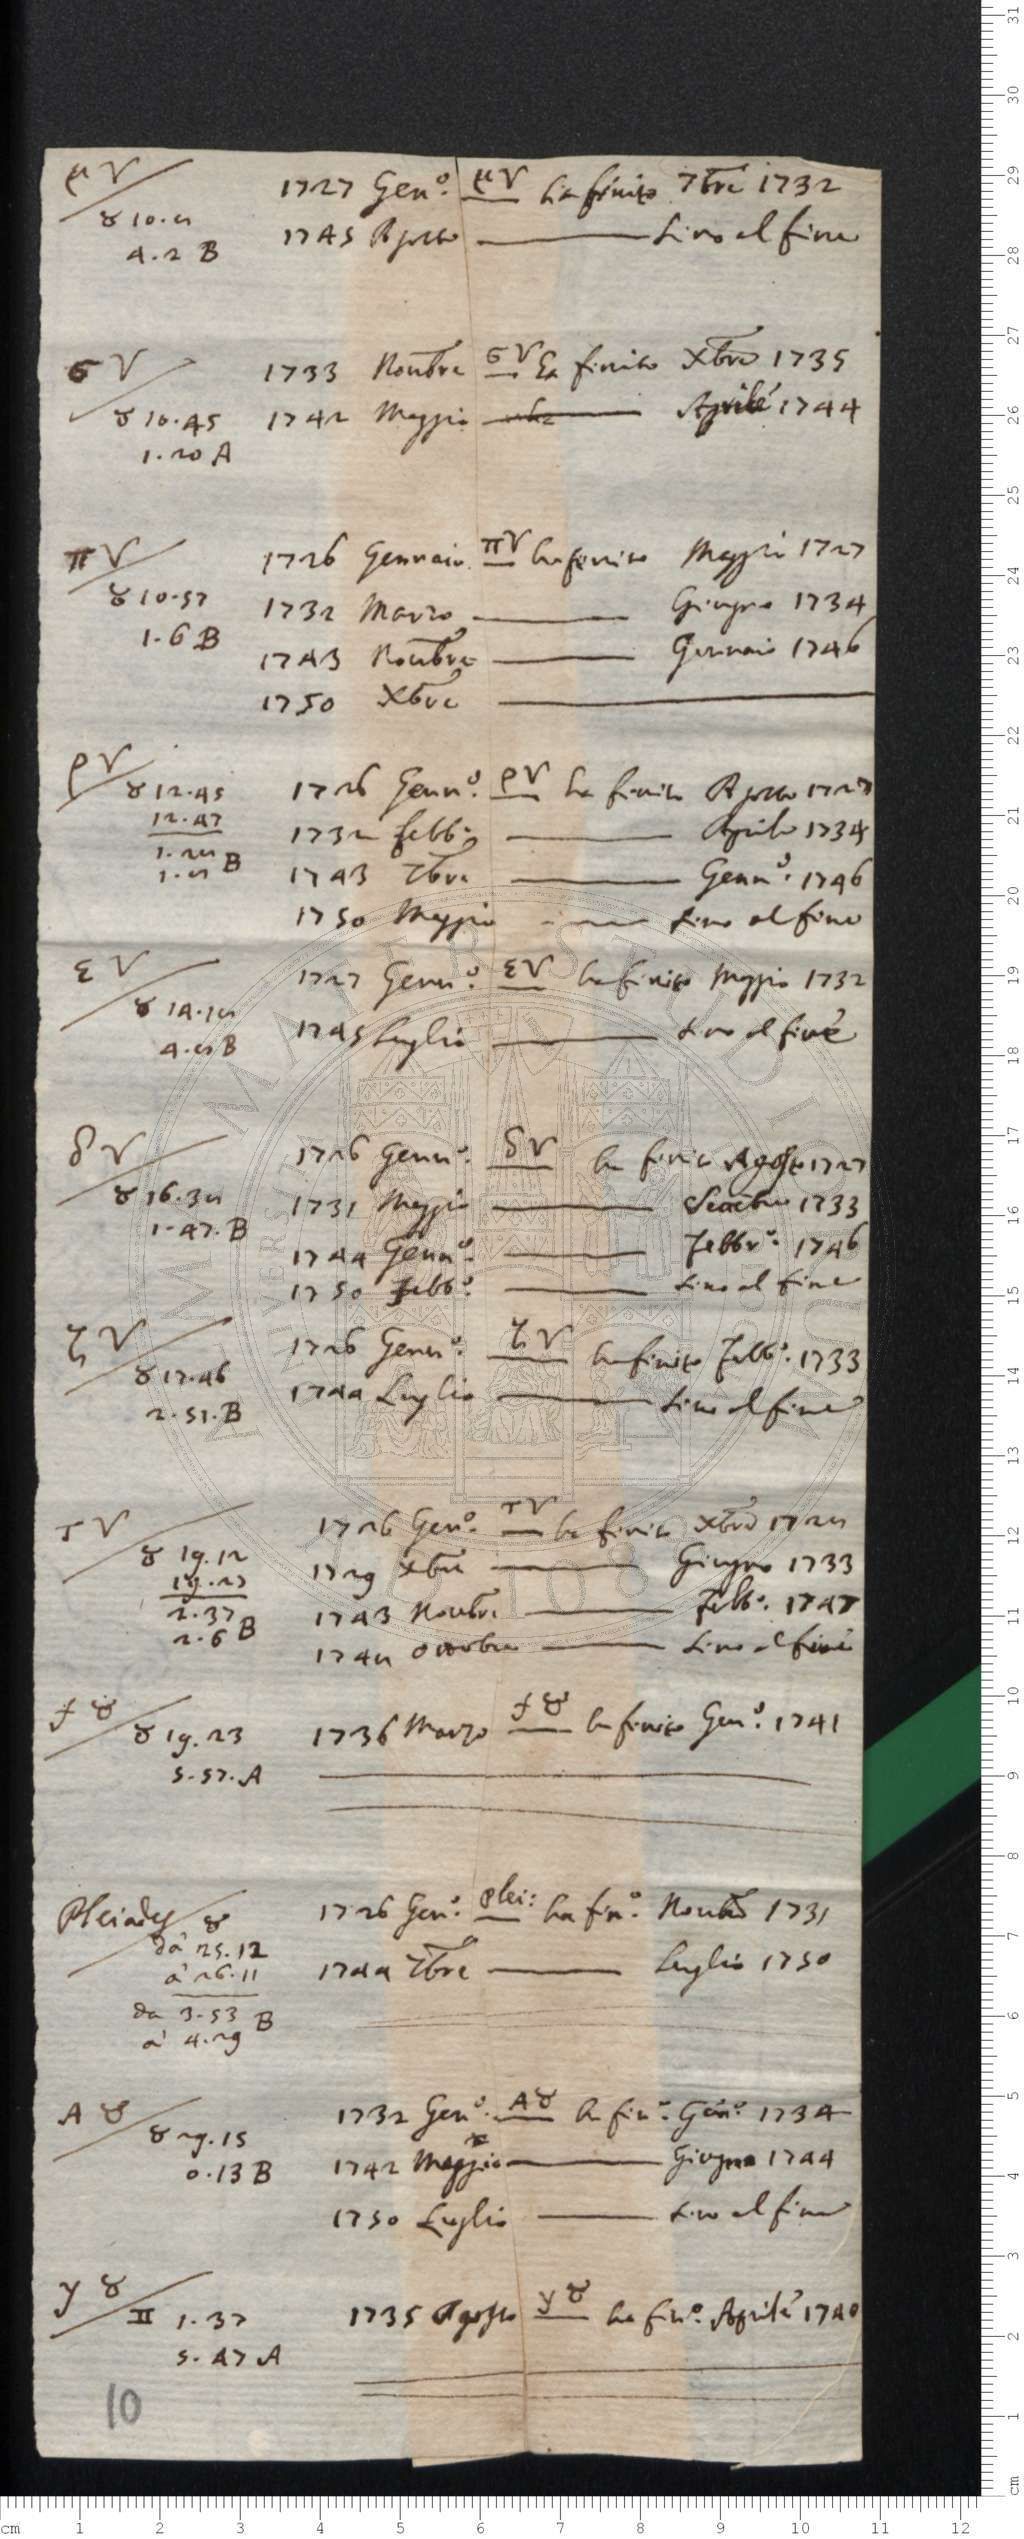 μ ♈ 1727 Gen.º μ♈ ha finito 7bre 1732
♉ 10.
4.2 B 1745 Agosto — sino al fine
σ ♈ 1733 Novbre σ♈ ha finito Xbre 1735
♉ 10.45 1742 Maggio — Aprile 1744
1.20 A
π ♈ 1726 Gennaio π♈ ha finito Maggio 1727
♉ 10.57 1732 Marzo — Giugno 1734
1.6 B 1743 Novbre — Gennaio 1746
1750 Xbre —
ρ ♈ ♉ 12.45 1726 Genn.º ρ♈ ha finito Agosto 1727
12.47 1732 febb.º — Aprile 1734
B 1743 7bre — Genn.º 1746
1750 Maggio — sino al fine
ε ♈ 1727 Genn.º ε♈ ha finito Maggio 1732
♉ 1745 Luglio — sino al fine
B
δ ♈ 1726 Genn.º δ♈ ha finito Agosto 1727
♉ 1731 Maggio — 1733
1.47.B 1744 Genn.º — Febbr.º 1746
1750 Febb.º — sino al fine
ζ ♈ 1726 Genn.º ζ♈ ha finito Febb.º 1733
♉ 17.46 1744 Luglio — sino al fine
2.51.B
τ ♈ 1726 Gen.º τ♈ ha finito Xbre
♉ 19.12 1729 Xbre — Giugno 1733
19.27
2.37 1743 Novbre — Febb.º 1747
2.6 B Ottobre — sino al fine
f ♉ ♉ 19.23 1736 Marzo f♉ ha finito Gen.º 1741
5.57.A
Pleiades ♉ 1726 Gen.º plei: ha fin.º Novbre 1731
da 25.12
a 26.11 1744 7bre — Luglio 1750
da 3.53 B
a 4.29
A ♉ 1732 Gen.º A♉ ha fin.º Gen.º 1734
♉ 29.15
0.13 B 1742 Maggio — Giugno 1744
1750 Luglio — sino al fine
y ♉ ♊ 1.37 1735 Agosto y♉ ha fin.º Aprile 1740
5.47 A
10
ALMA MATER STUDIORUM
UNIVERSITÀ DI BOLOGNA
A.D. 1088